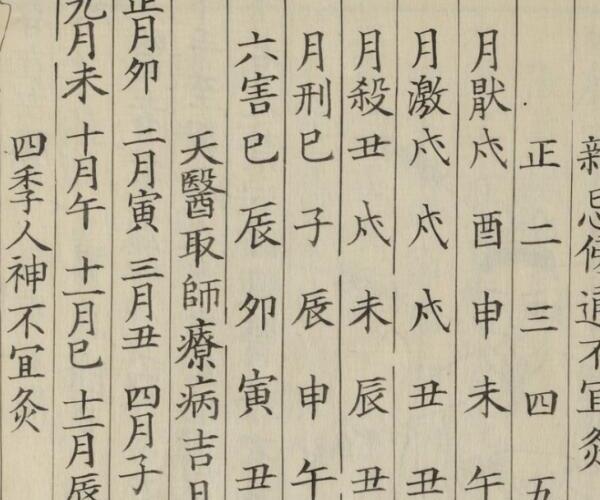 新忌傍通不宜灸
正二三四五
月厭戌酉申未午
月激戌戌戌丑丑
月殺丑戌未辰丑
月刑巳子辰申午
六害巳辰卯寅丑
天醫取師療病吉日
正月卯二月寅三月丑四月子
九月未十月午十一月巳十二月辰
四季人神不宜灸